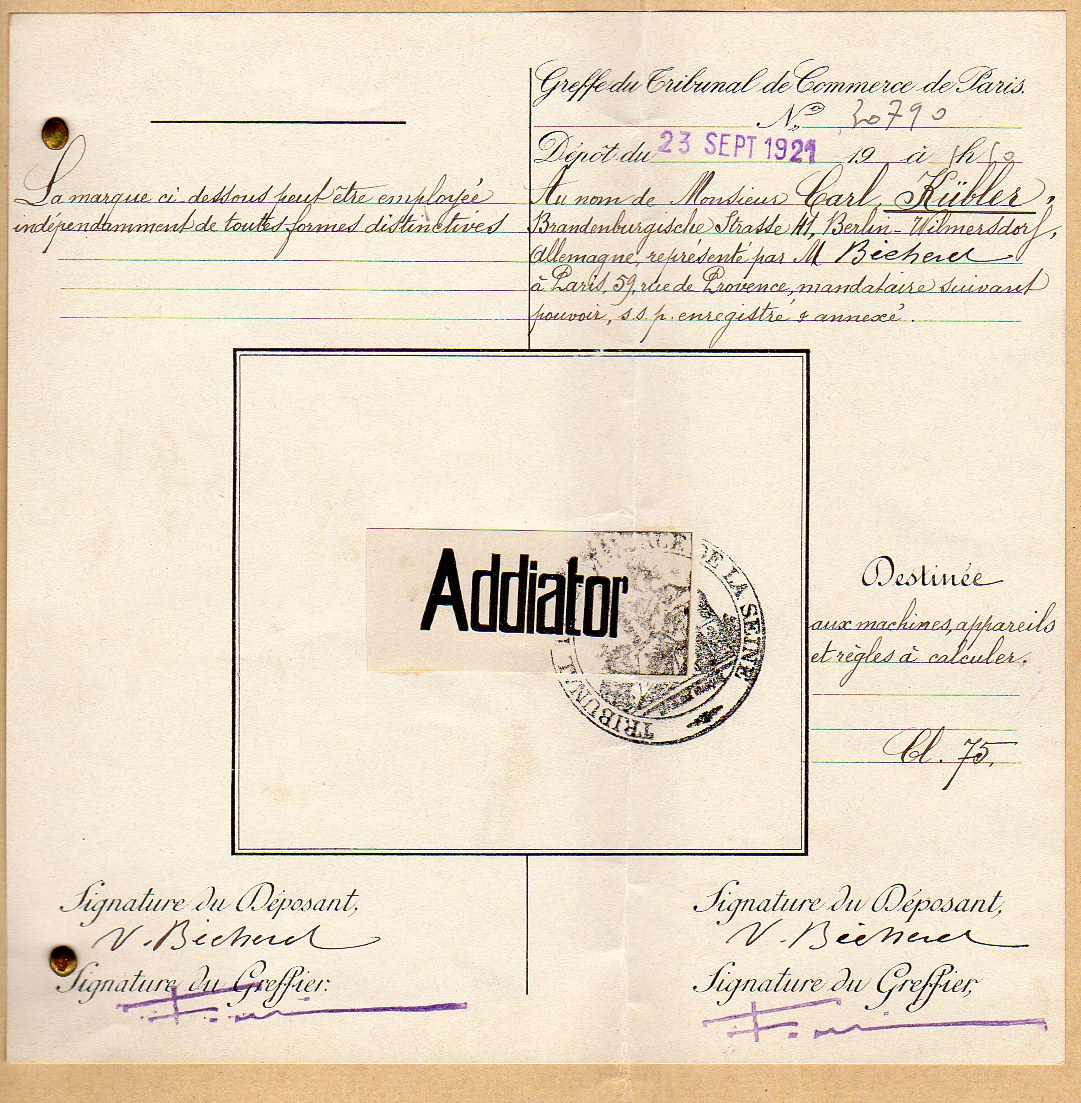 Greffe du Tribunal de Commerce de Paris.
No 30790
Dépôt du 23 SEPT 1921 19 à 1h 10
La marque ci dessous peut être employée
indépendamment de toutes formes distinctives
Au nom de Monsieur Carl Kübler,
Brandenburgische Strasse 41, Berlin-Wilmersdorf,
Allemagne, représenté par M Bécherel
à Paris, 59, rue de Provence, mandataire suivant
pouvoir, s.s.p. enregistré & annexé.
Addiator
TRIBUNAL DE LA SEINE
Destinée
aux machines, appareils
et règles à calculer.
Cl. 75.
Signature du Déposant,
V. Bécherel
Signature du Greffier.
Signature du Déposant,
V. Bécherel
Signature du Greffier,